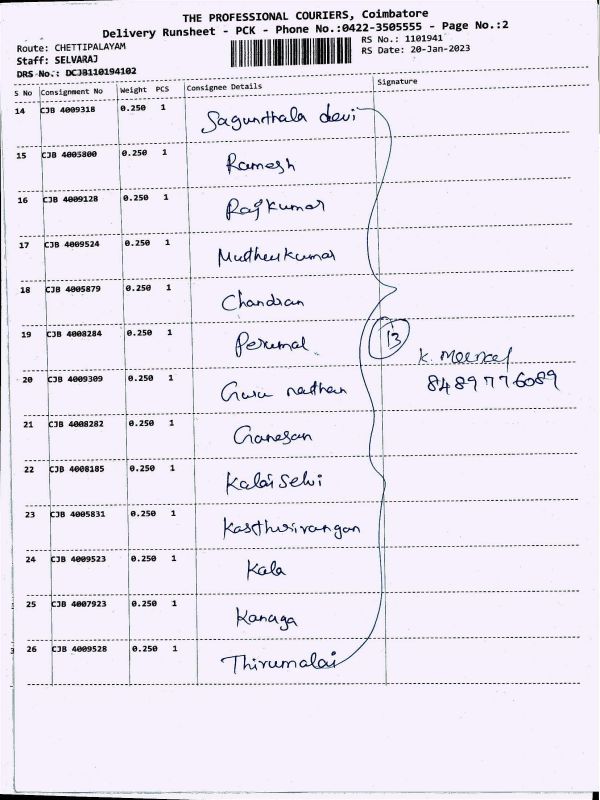 THE PROFESSIONAL COURIERS, Coimbatore
Delivery Runsheet - PCK - Phone No.:0422-3505555 - Page No.:2
Route: CHETTIPALAYAM
RS No.: 1101941
Staff: SELVARAJ
RS Date: 20-Jan-2023
DRS No.: DCJB110194102
S No Consignment No Weight PCS Consignee Details Signature
14 CJB 4009318 0.250 1 Sagunthala devi
15 CJB 4005800 0.250 1 Ramesh
16 CJB 4009128 0.250 1 Rajkumar
17 CJB 4009524 0.250 1 Muthukumar
18 CJB 4005879 0.250 1 Chandran
19 CJB 4008284 0.250 1 Perumal
13
K.
20 CJB 4009309 0.250 1 Guru nathan 8489776089
21 CJB 4008282 0.250 1 Ganesan
22 CJB 4008185 0.250 1 Kalai Selvi
23 CJB 4005831 0.250 1 Kasthurirangan
24 CJB 4009523 0.250 1 Kala
25 CJB 4007923 0.250 1 Kanaga
26 CJB 4009528 0.250 1 Thirumalai